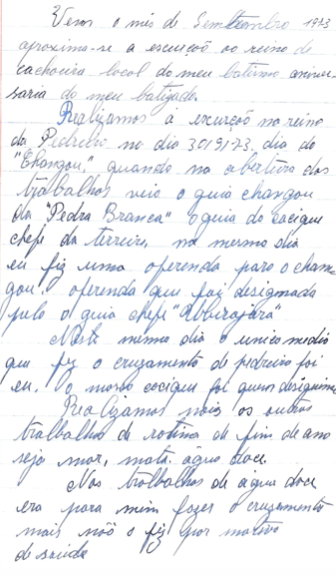 Vem o mês de Semtembro 1973
aproxima-se a escurçõ ao reino de
cachoeira local do meu batismo aniver-
saria do meu batizado.
Realizamos a excurçõ no reino
da Pedreira no dia 30/9/73. dia do
"Changou" quando na abertura dos
trabalhos veio o guia changou
da "Pedra Branca" o guia do cacique
chefe da terreira, no mesmo dia
eu fiz uma oferenda para o chan
gou oferenda que foi designada
pelo o guia chefe "Ubirajára"
Neste mesmo dia o unico medio
que fez o cruzamento de pedreira foi
eu. O nosso cacique foi quem
Realizamos mais os outros
trabalho de rotina de fim de ano
seja mar, mata. agua doce
Nos trabalhos de agua doce
era para mim fazer o cruzamento
mais nõõ o fiz por motivo
de saúde